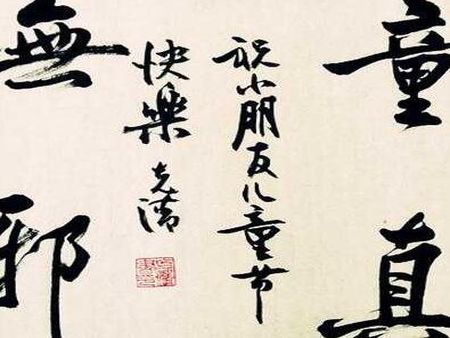 童真
祝小朋友儿童节
快樂
無邪